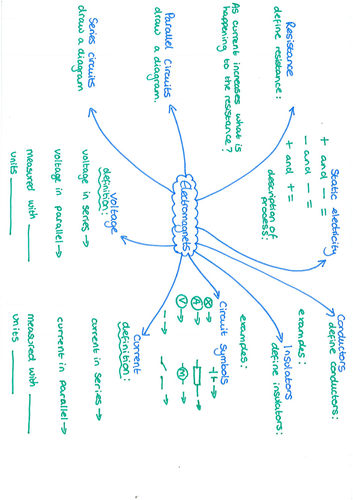 Static electricity
+ and - =
- and - =
+ and + =
description of
process:
Conductors
define conductors:
examples:
Insolators
define insulators:
examples:
Resistance
define resistance:
As current increases what is
happening to the resistance?
Electromagnets
Circuit symbols
A
V
M
Parallel Circuits
draw a diagram.
Series circuits
draw a diagram
Voltage
definition:
voltage in series →
voltage in parallel →
measured with
units
Current
definition:
current in series →
current in parallel →
measured with
units